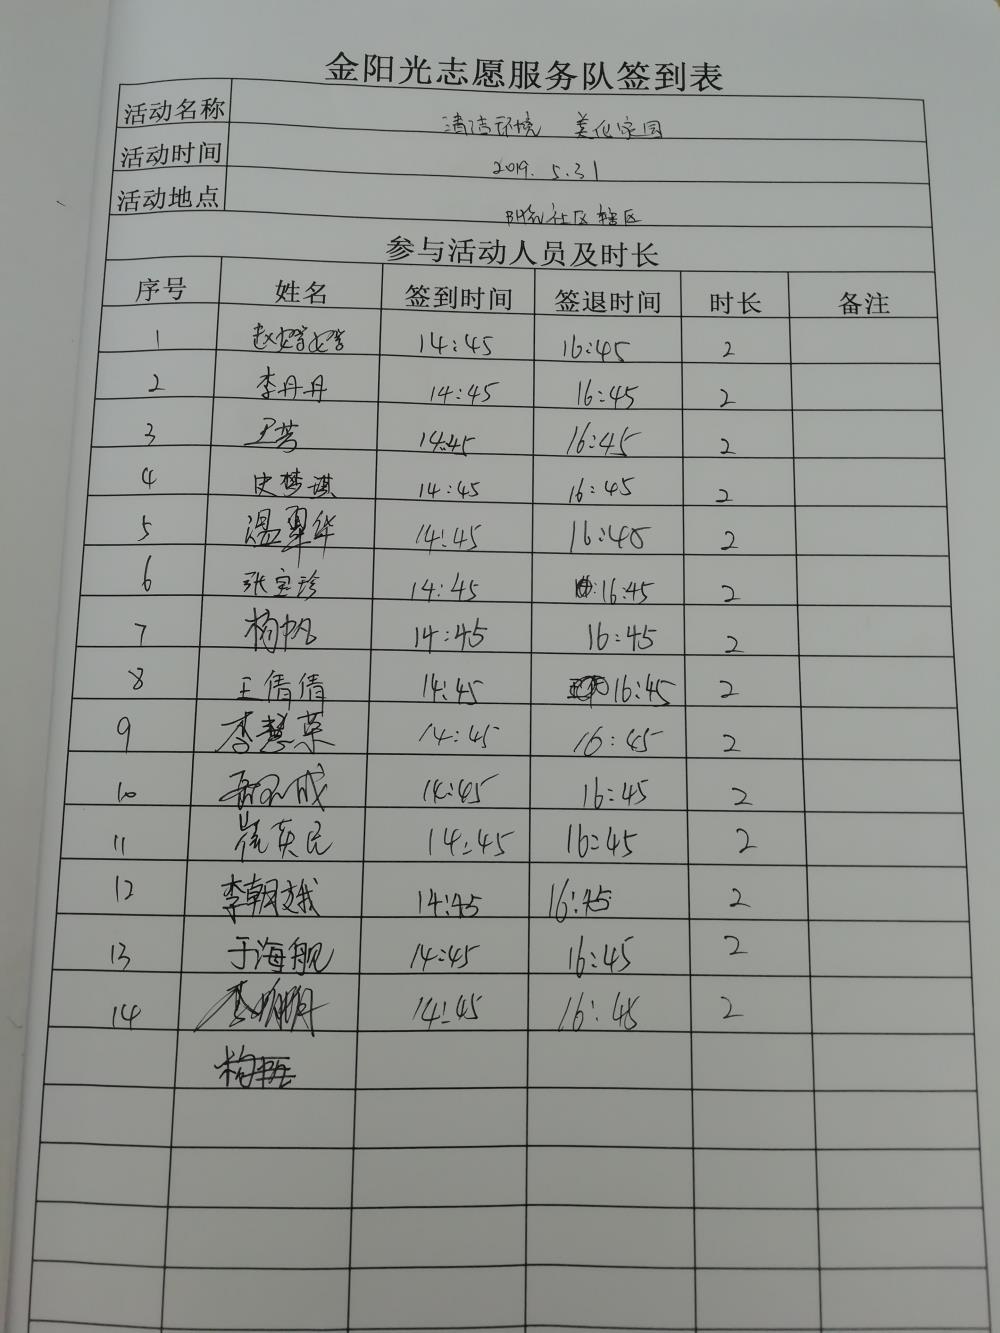 金阳光志愿服务队签到表
活动名称 清洁环境 美化家园
活动时间 2019.5.31
活动地点 社区辖区
参与活动人员及时长
序号 姓名 签到时间 签退时间 时长 备注
1 赵婷婷 14:45 16:45 2
2 李丹丹 14:45 16:45 2
3 王芳 14:45 16:45 2
4 史梦琪 14:45 16:45 2
5 温翠华 14:45 16:45 2
6 张宝珍 14:45 16:45 2
7 杨帆 14:45 16:45 2
8 王倩倩 14:45 16:45 2
9 李慧荣 14:45 16:45 2
10 14:45 16:45 2
11 崔英民 14:45 16:45 2
12 李朝娥 14:45 16:45 2
13 于海舰 14:45 16:45 2
14 李明月 14:45 16:45 2